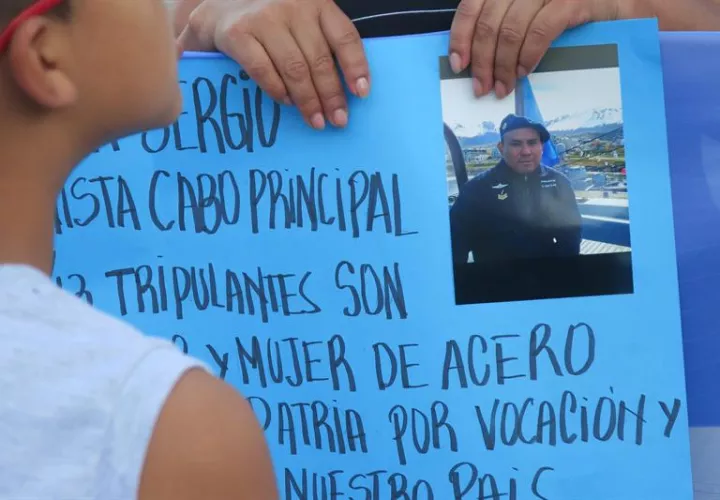 SERGIO
ISTA CABO PRINCIPAL
43 TRIPULANTES SON
Y MUJER DE ACERO
PATRIA POR VOCACIÓN Y
NUESTRO PAIS